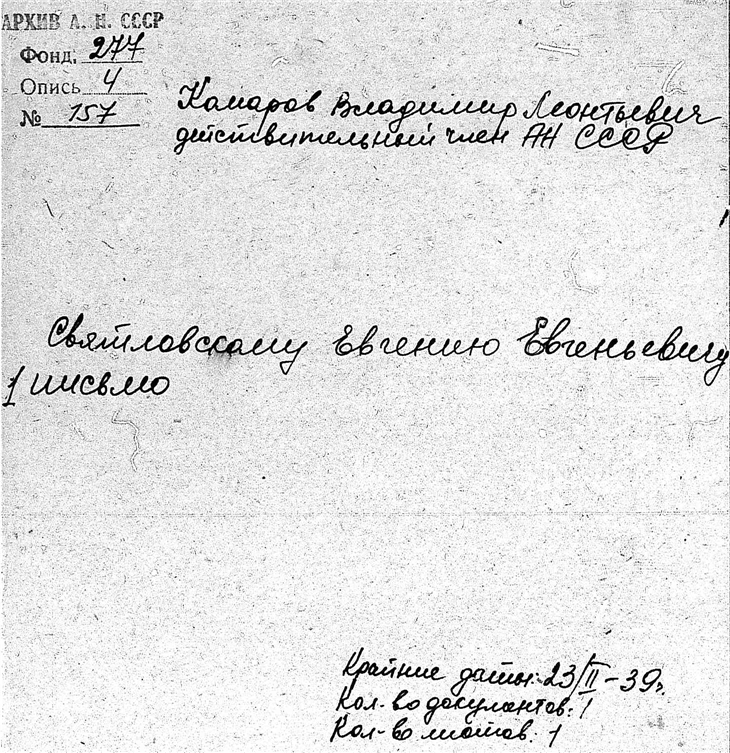 АРХИВ А. Н. СССР
Фонд. 277
Опись 4
№ 157
Комаров Владимир Леонтьевич
действительный член АН СССР
Святловскому Евгению Евгеньевичу
1 письмо
Крайние даты: 23/II-39г.
Кол-во документов: 1
Кол-во листов: 1